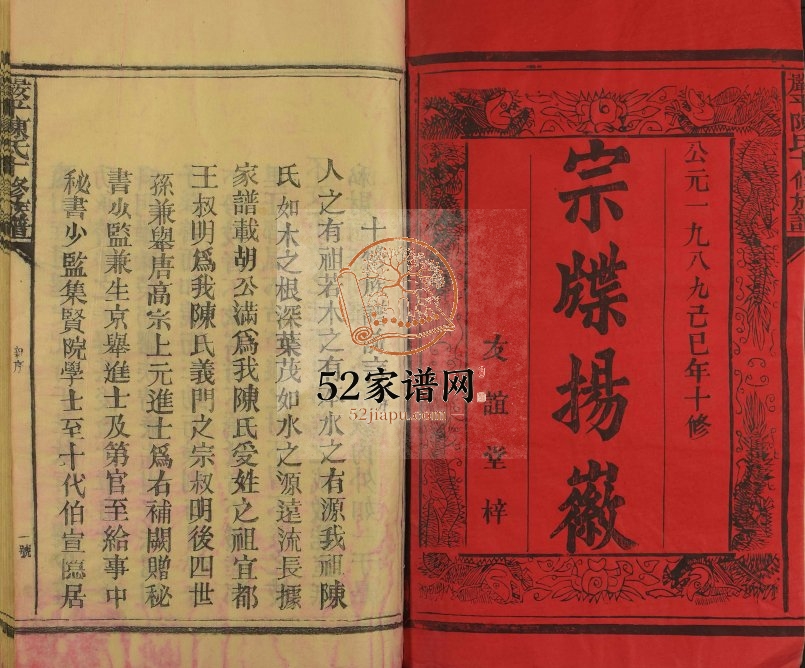 公元一九八九己巳年十修
宗牒揚徽
友誼堂梓
人之有祖若木之有水之有源我祖陳
氏如木之根深葉茂如水之源遠流長據
家譜載胡公滿爲我陳氏受姓之祖宜都
王叔明爲我陳氏義門之宗叔明後四世
孫兼舉唐高宗上元進士爲右補闕贈秘
書少監兼生京舉進士及第官至給事中
秘書少監集賢院學士至十代伯宣隱居
陳氏十修族譜
一號
52家谱网
52jiapu.com